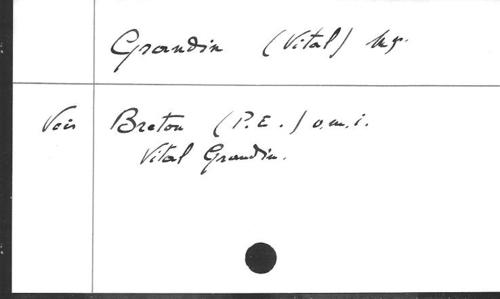 Grandin (Vital) Mgr.
Voir Breton (P.E.) o.m.i.
Vital Grandin.